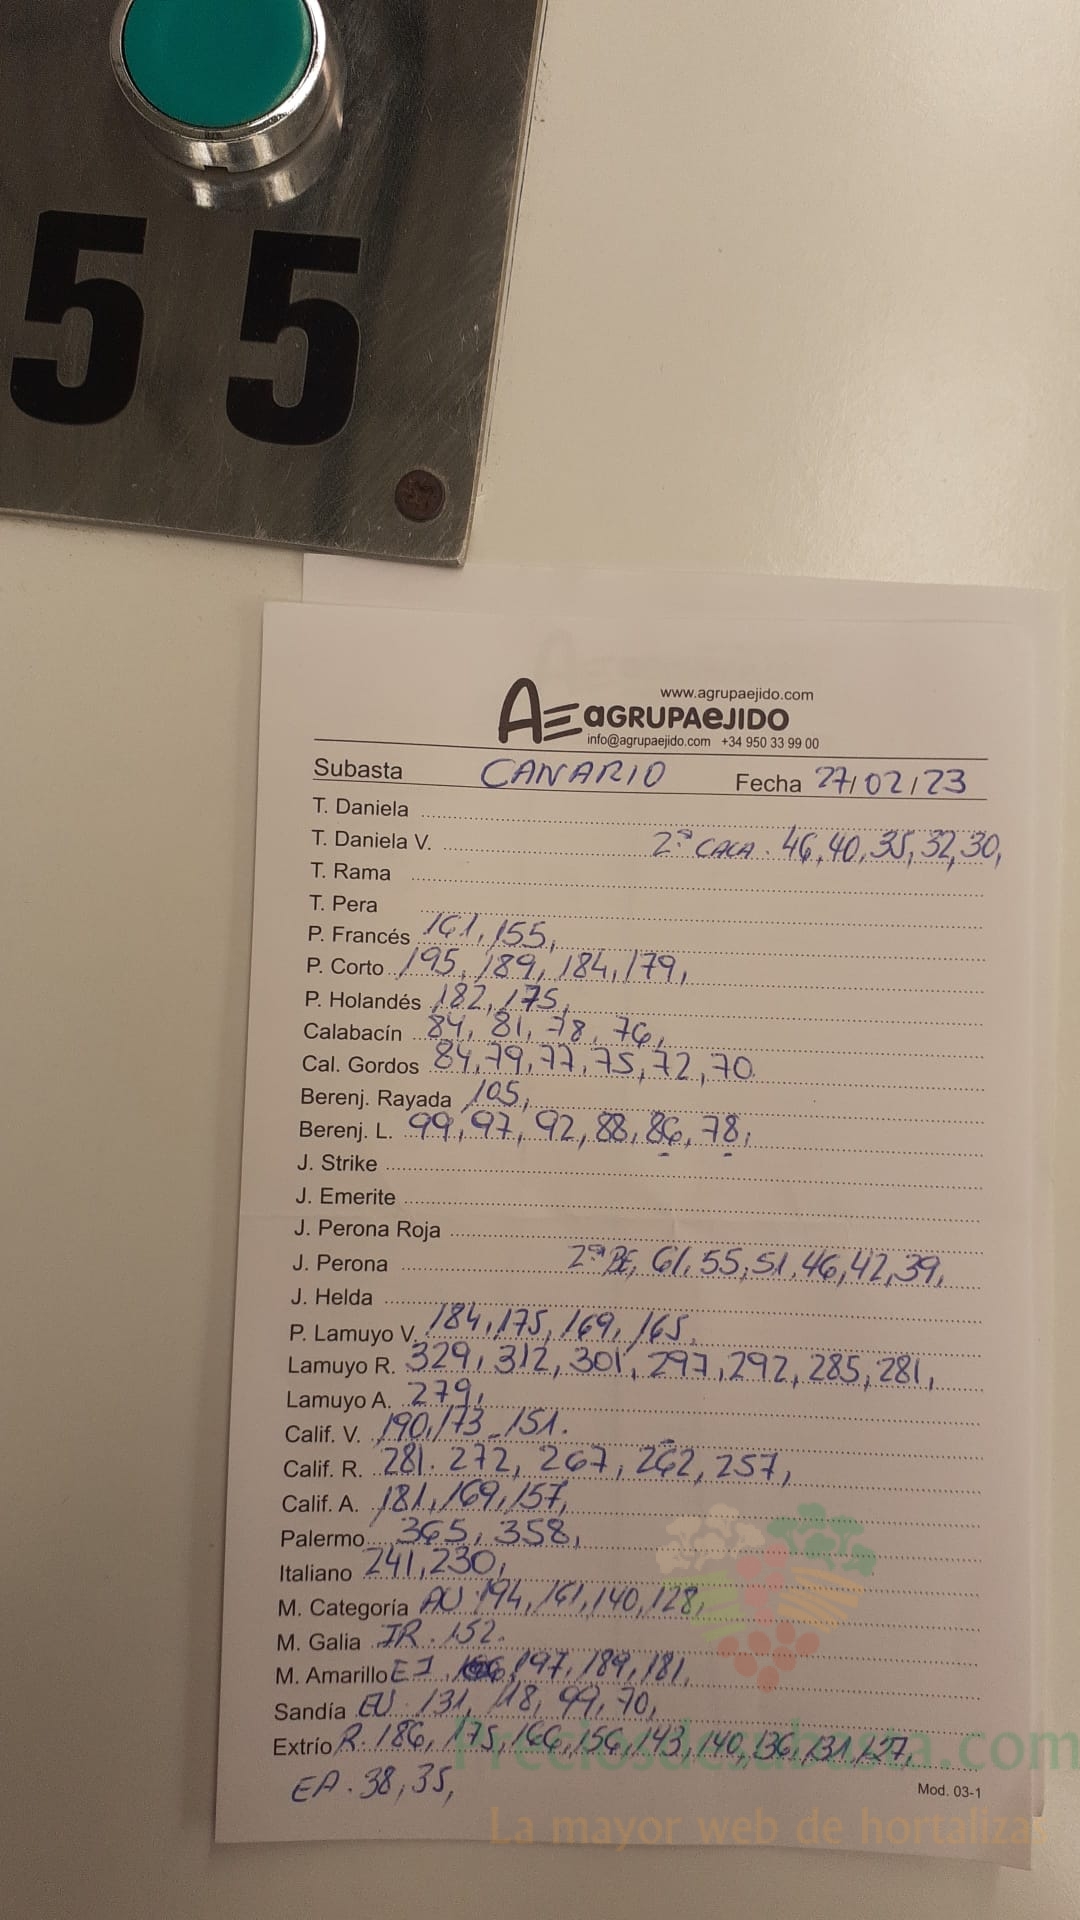 55
www.agrupaejido.com
AE aGRUPAeJIDO
info@agrupaejido.com +34 950 33 99 00
Subasta CANARIO Fecha 27/02/23
T. Daniela
T. Daniela V. 2ª CACA. 46,40,35,32,30,
T. Rama
T. Pera
P. Francés 161,155,
P. Corto 195,189,184,179,
P. Holandés 182,175,
Calabacín 84,81,78,76,
Cal. Gordos 84,79,77,75,72,70
Berenj. Rayada 105,
Berenj. L. 99,97,92,88,86,78,
J. Strike
J. Emerite
J. Perona Roja
J. Perona 2ª BE, 61,55,51,46,42,39,
J. Helda
P. Lamuyo V. 184,175,169,165.
Lamuyo R. 329,312,301,297,292,285,281,
Lamuyo A. 279,
Calif. V. 190,173_151.
Calif. R. 281. 272, 267, 262, 257,
Calif. A. 181,169,157,
Palermo 365,358,
Italiano 241,230,
M. Categoría AU 194,161,140,128,
M. Galia IR. 152.
M. Amarillo EJ 197,189,181,
Sandía EU. 131, 118, 99, 70,
Extrío R. 186, 175, 166, 156, 143, 140, 136, 131, 127,
EA. 38,35,
Mod. 03-1
Preciosdesubasta.com
La mayor web de hortalizas